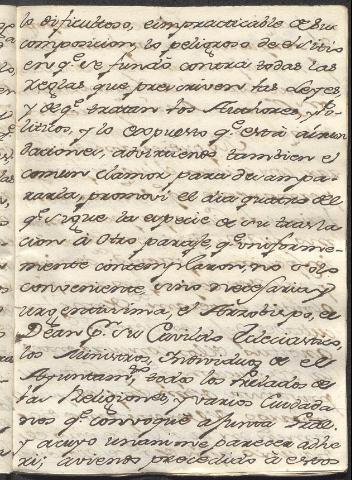 lo dificultoso, é impracticable de su
composicion, lo peligroso de el sitio
en q.e se fundó contra todas las
reglas que prescriven las Leyes,
y de q.e tratan los Authores, Po-
liticos, y lo expuesto q.e está á inun-
daciones, advirtiendo tambien el
comun clamor para desampa-
rarla, promoví el dia quatro del
q.e sigue la especie de su trasla-
cion á otro paraje, q.e uniforme-
mente contemplaron, no solo
conveniente, sino necesaria, y
urgentissima, el Arzobispo, el
Dean y su Cavildo Eclesiastico,
los Ministros, Individuos de el
Ayuntam.to todos los Prelados de
las Religiones, y varios Ciudada-
nos q.e convoque a Junta Gral.
y a cuyo unanime parecer adhe-
ri; aviendo precedido á estos